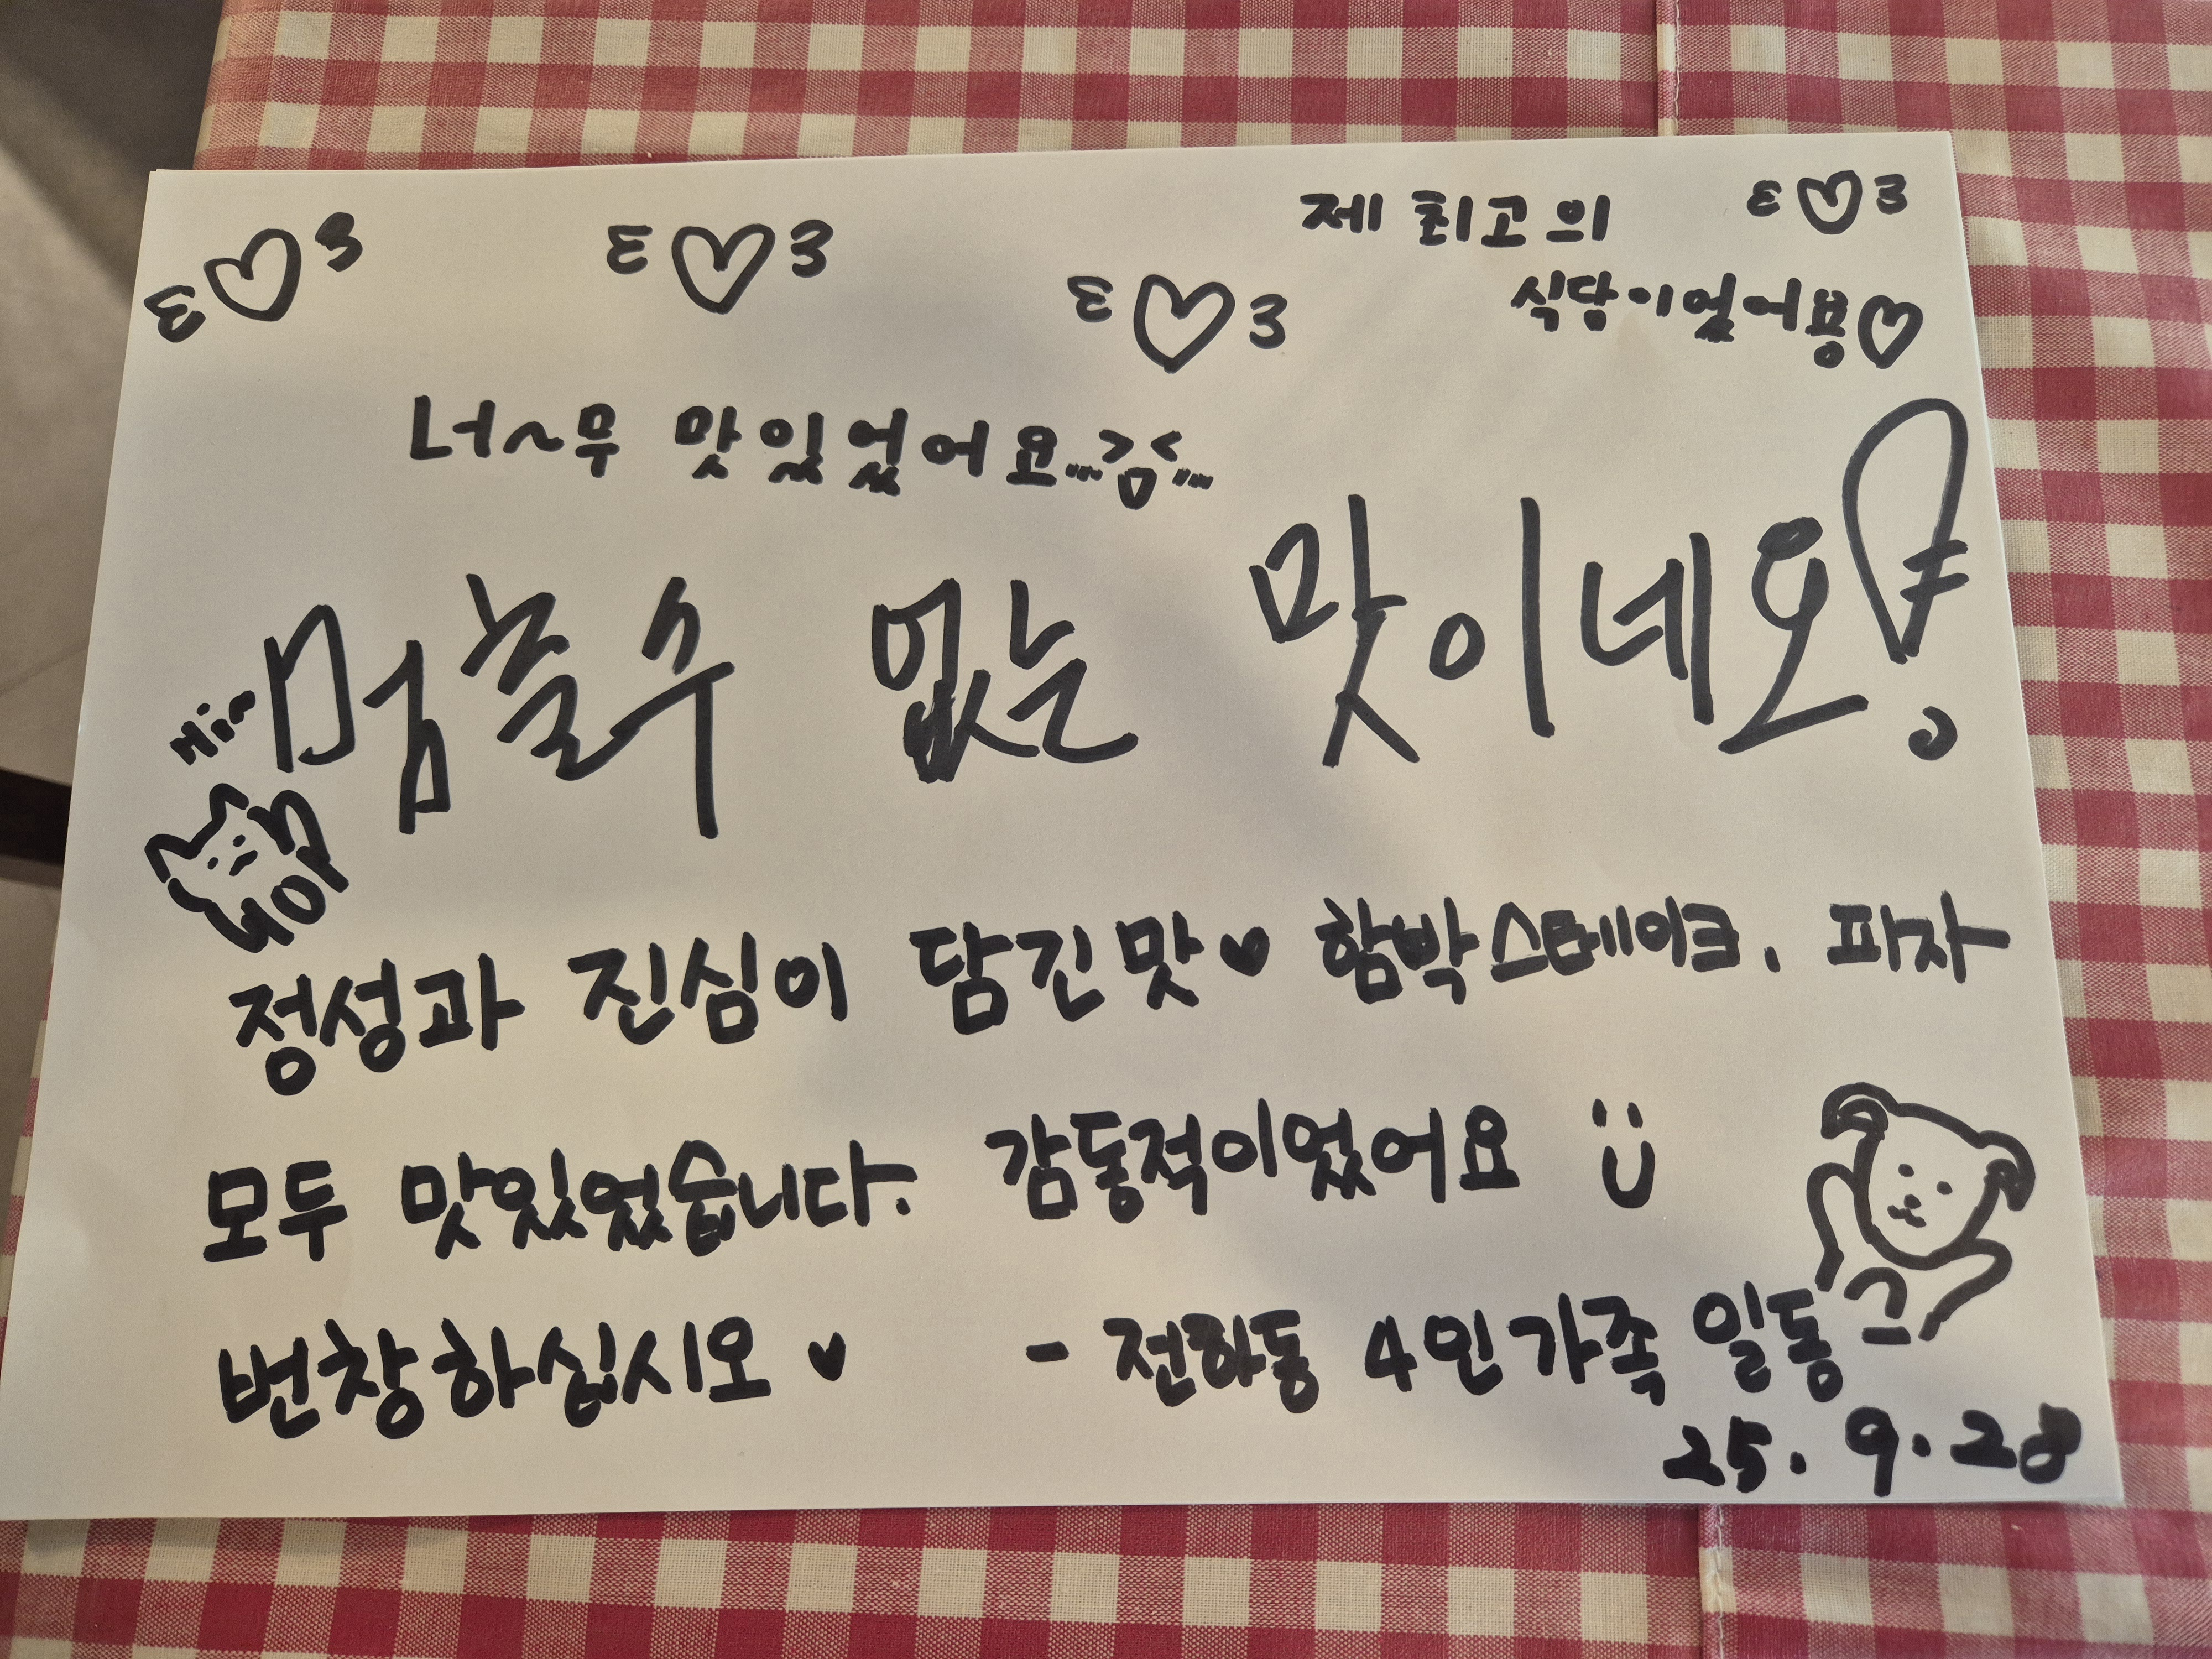 제 최고의
식당이었어용♡
너~무 맛있었어요
멈출수 없는 맛이네요!
정성과 진심이 담긴 맛♥ 함박스테이크, 피자
모두 맛있었습니다. 감동적이었어요
번창하십시오 ♥ - 전하동 4인가족 일동
25. 9. 28